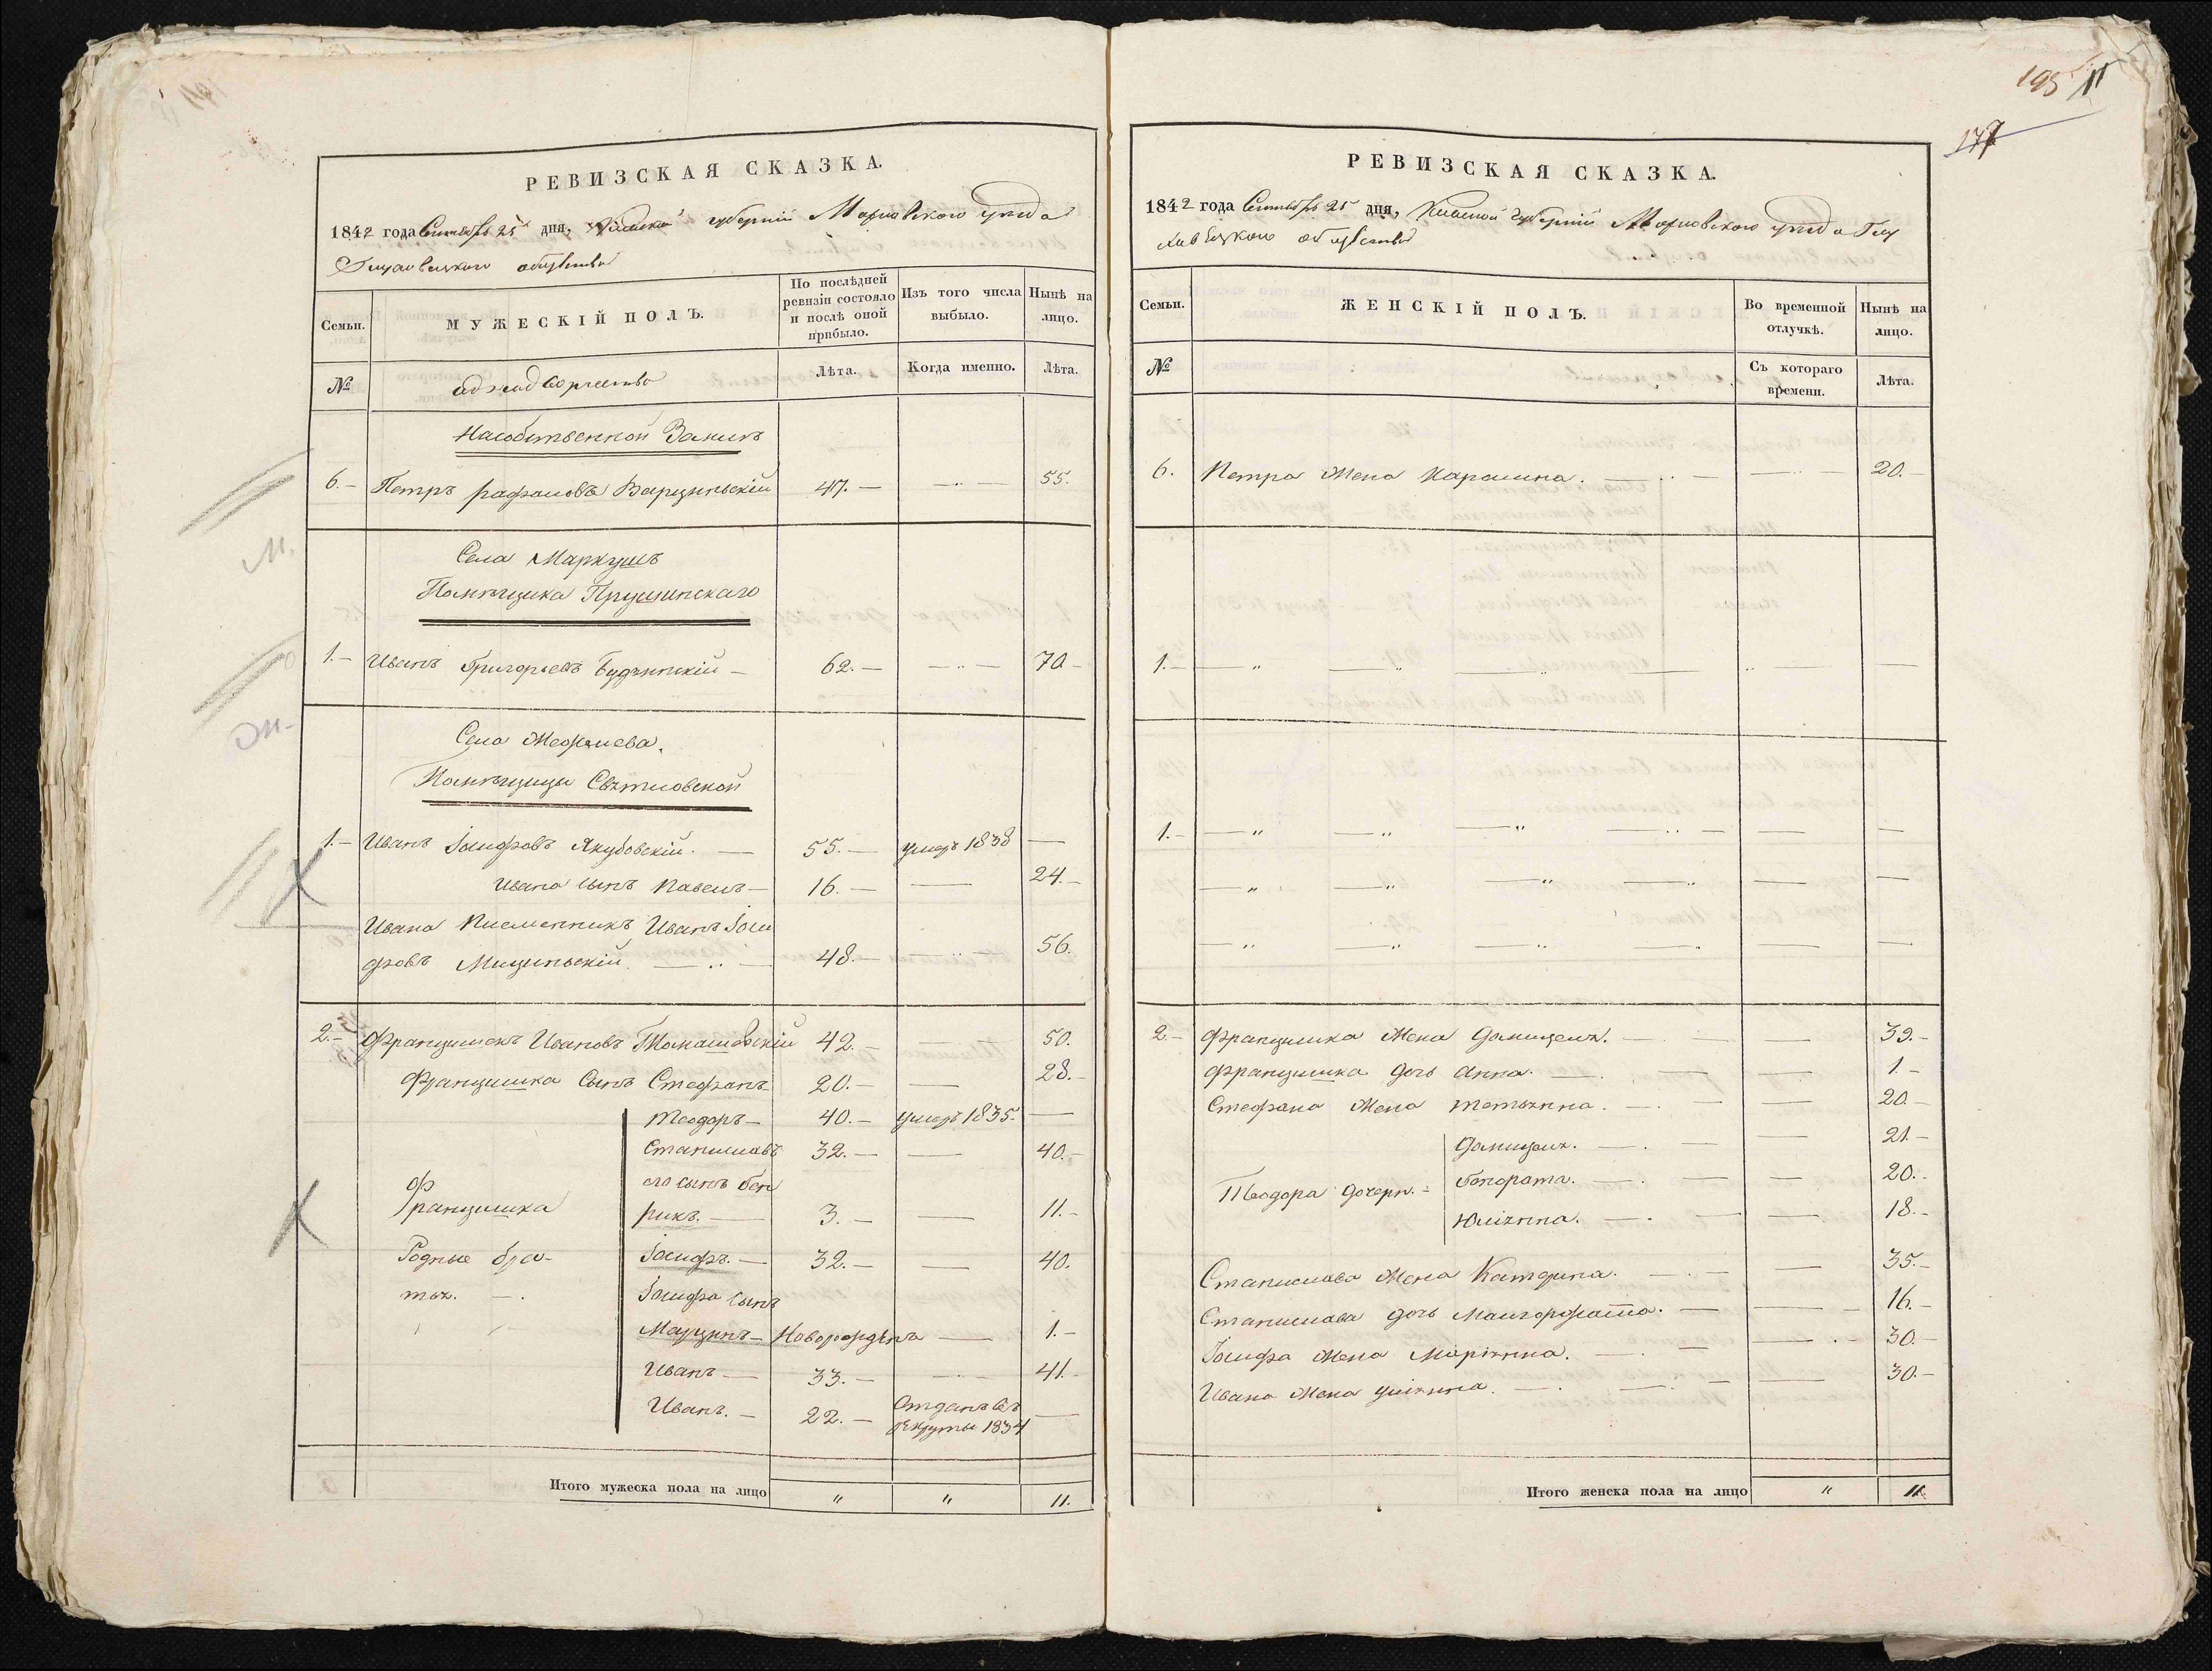 РЕВИЗСКАЯ СКАЗКА.
1842 года Сентября 25 дня, Киевской губерніи Махновскаго уѣзда
общества
Семьи.
МУЖЕСКІЙ ПОЛЪ.
По послѣдней ревизіи состояло и послѣ оной прибыло.
Изъ того числа выбыло.
Нынѣ на лицо.
№
однодворчество
Лѣта.
Когда именно.
Лѣта.
Насобственной
6.— Петръ рафаловъ 47.— —..— 55.
Села Маркушъ
Помѣщика Прушинскаго
1.— Иванъ Григорьевъ Будзинскій — 62.— —..— 70—
Села
Помѣщицы
1.— Иванъ Іосифовъ Якубовскій. — 55.— умеръ 1838 —
Ивана сынъ Павелъ — 16.— — 24.—
Ивана Иванъ Іоси
фовъ 48.— —..— 56.
2.— Францишекъ Ивановъ Томашевскій 42.— — 50.
Францишка Сынъ Стефанъ 20.— — 28.—
Теодоръ — 40.— умеръ 1835. —
Станиславъ 32.— — 40.—
его сынъ Ген
Францишка
рикъ. — 3.— — 11.—
Родные бра-
Іосифъ. — 32.— — 40.
тья. —.
Іосифа сынъ
Марцинъ — Новорожденъ — 1.—
Иванъ — 33.— —.— 41.—
Иванъ. — 22.— Отданъ въ рекруты 1834 —
Итого мужеска пола на лицо " " 11.
195 11
РЕВИЗСКАЯ СКАЗКА.
1842 года Сентября 25 дня, Киевской губерніи Махновскаго уѣзда
общества
Семьи.
ЖЕНСКІЙ ПОЛЪ.
Во временной отлучкѣ.
Нынѣ на лицо.
№
Съ котораго времени.
Лѣта.
6. Петра Жена Каролина. —..— —..— 20.—
1.— — " — " — " — —
1.— — " — " — " — — —
— " — " — " — " — —
— " — " — " — " — —
2.— Францишка Жена — — 39.—
Францишка дочь Анна. — — 1—
Стефана Жена —. — 20—
—. — 21—
Теодора дочери. — Гонората. —. — 20.—
Юліянна. —. — 18.—
Станислава Жена Катерина. —.— — 35.—
Станислава дочь — — 16.—
Іосифа Жена Маріянна. —. — 30.—
Ивана Жена уліянна. —. — 30.—
Итого женска пола на лицо " 11.